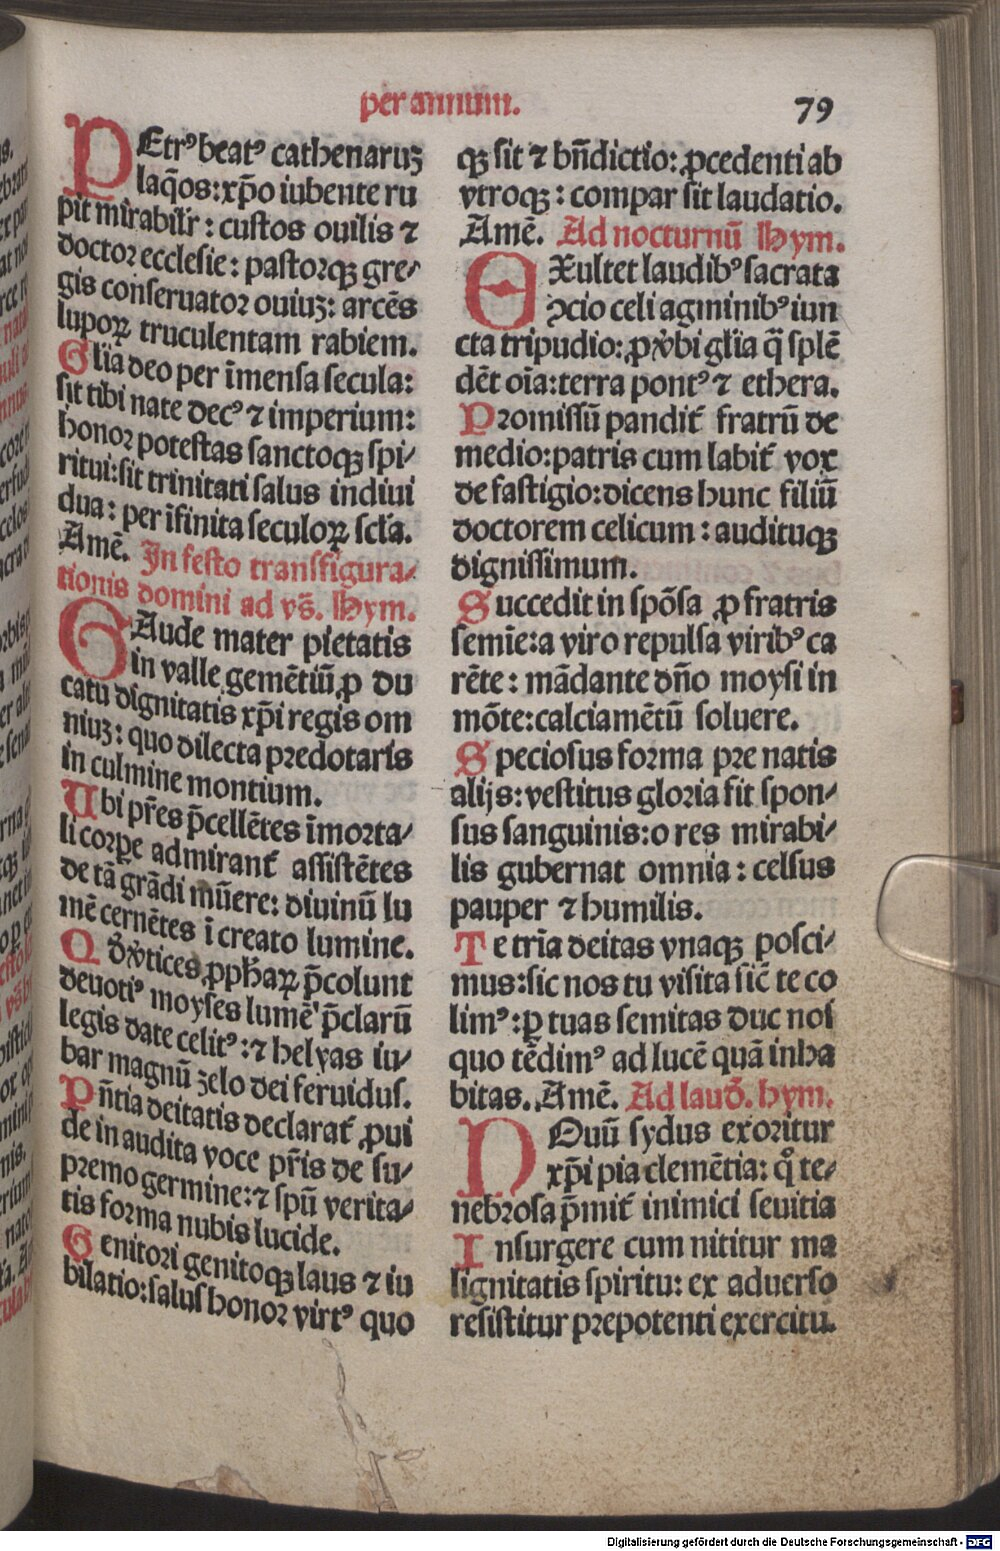 per annum.
79
PEtrꝰ beatꝰ cathenaruʒ
laq̃os: xp̃o iubente ru
pit mirabilr̃: custos ouilis ⁊
doctor ecclesie: pastorqꝫ gre⸗
gis conseruator ouiuʒ: arcẽs
lupoꝝ truculentam rabiem.
Glia deo per ĩmensa secula:
sit tibi nate decꝰ ⁊ imperium:
honor potestas sanctoqꝫ spi⸗
ritui: sit trinitati salus indiui
dua: per ĩfinita seculoꝝ scl̃a.
Amẽ. In festo transfigura⸗
tionis domini ad vs̃. Hym.
GAude mater pietatis
in valle gemẽtiũ, ꝓ du
catu dignitatis xp̃i regis om
niuʒ: quo dilecta predotaris
in culmine montium.
Ubi pr̃es p̃cellẽtes ĩmorta⸗
li corꝑe admirant̃ assistẽtes
de tã grãdi mũere: diuinũ lu
mẽ cernẽtes ĩ creato lumine.
Qd̃ v̾tices ꝓphaꝝ p̃colunt
deuotiꝰ moyses lumẽ p̃clarũ
legis date celitꝰ: ⁊ helyas iu⸗
bar magnũ zelo dei feruidus.
Pñtia deitatis declarat̃ ꝓ pui
de inaudita voce pr̃is de su⸗
premo germine: ⁊ spũ verita⸗
tis forma nubis lucide.
Genitori genitoqꝫ laus ⁊ iu
bilatio: salus honor virtꝰ quo
qꝫ sit ⁊ bñdictio: ꝓcedenti ab
vtroqꝫ: compar sit laudatio.
Amẽ. Ad nocturnũ Hym.
EXultet laudibꝰ sacrata
ꝯcio celi agminibꝰ iun
cta tripudio: ꝓ v̾bi glia q̃ splẽ
dẽt oĩa: terra pontꝰ ⁊ ethera.
Promissũ pandit̃ fratrũ de
medio: patris cum labit̃ vox
de fastigio: dicens hunc filiũ
doctorem celicum: audituqꝫ
dignissimum.
Succedit in spõsa ꝓ fratris
semĩe: a viro repulsa viribꝰ ca
rẽte: mãdante dño moysi in
mõte: calciamẽtũ soluere.
Speciosus forma pre natis
alijs: vestitus gloria fit spon⸗
sus sanguinis: o res mirabi⸗
lis gubernat omnia: celsus
pauper ⁊ humilis.
Te trĩa deitas vnaqꝫ posci⸗
mus: sic nos tu visita sic̃ te co
limꝰ: ꝑ tuas semitas duc nos
quo tẽdimꝰ ad lucẽ quã inha
bitas. Amẽ. Ad laud̃. hym.
NOuũ sydus exoritur
xp̃i pia clemẽtia: qͦ te⸗
nebrosa p̃mit̃ inimici seuitia
Insurgere cum nititur ma
lignitatis spiritu: ex aduerso
resistitur prepotenti exercitu.
Digitalisierung gefördert durch die Deutsche Forschungsgemeinschaft - DFG